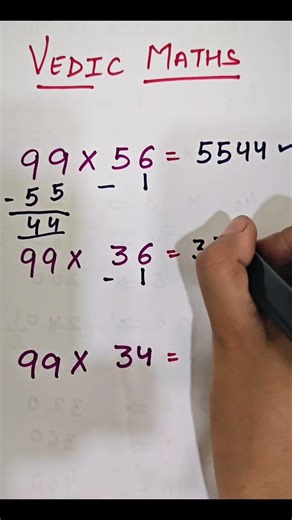 VEDIC MATHS
99 X 56 = 5544 ✓
- 55 - 1
44
99 X 36 = 3
- 1
99 X 34 =